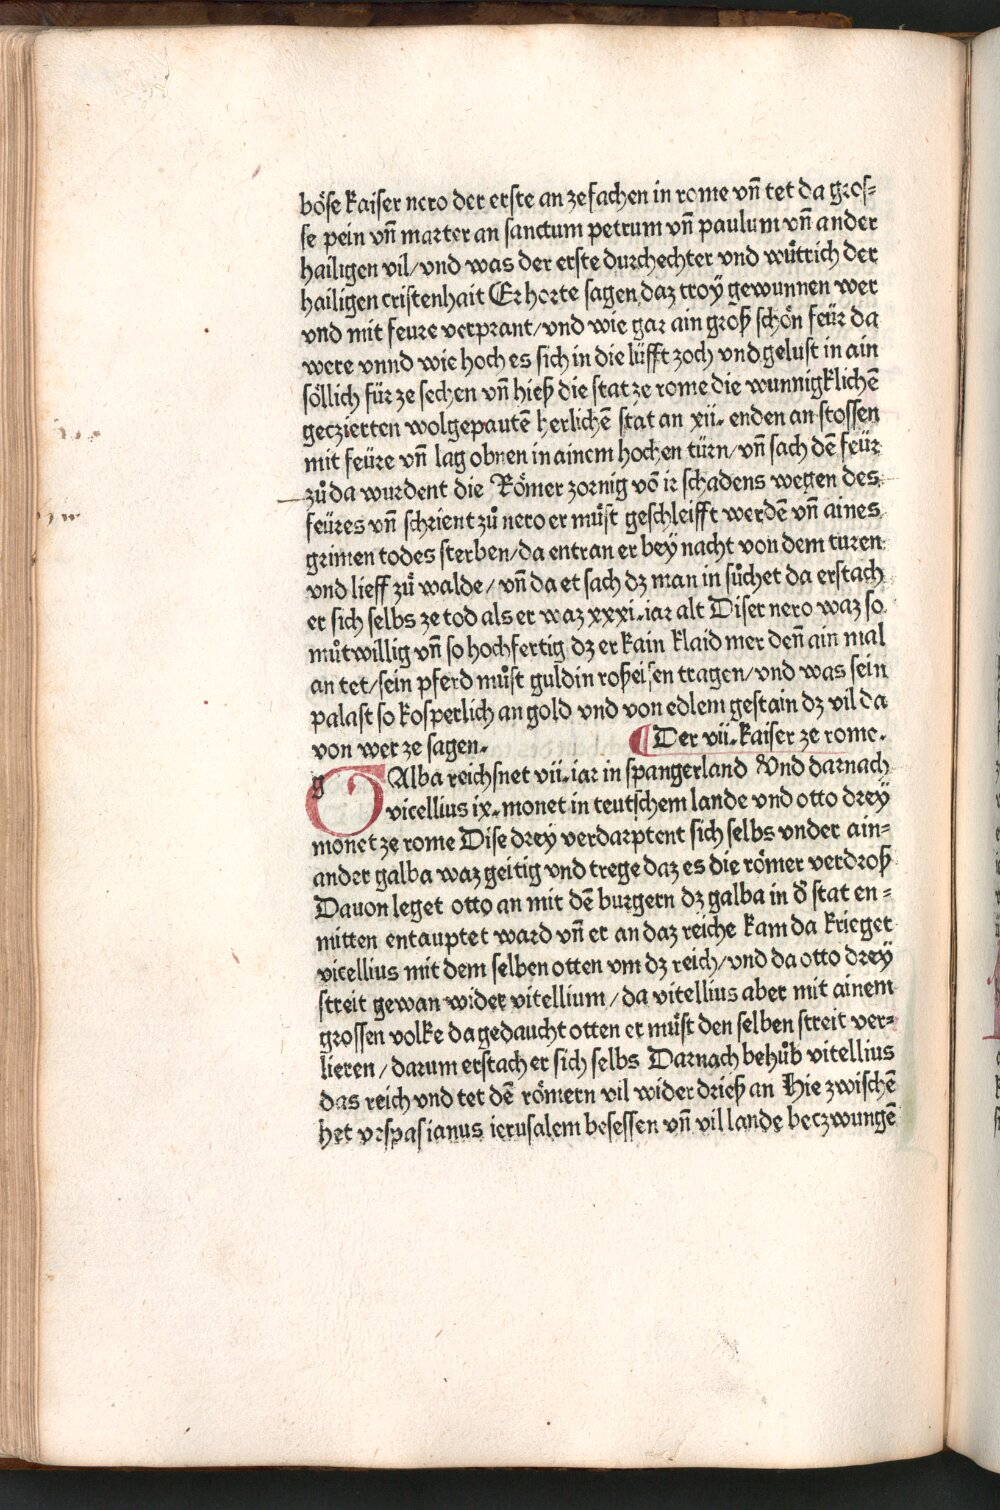 böse kaiser nero der erste an zefachen in rome vn̄ tet da gros-
se pein vn̄ marter an sanctum petrum vn̄ paulum vn̄ ander
hailigen vil/vnd was der erste durchechter vnd wuͤtrich der
hailigen cristenhait Er horte sagen daz troÿ gewunnen wer
vnd mit feure verprant/vnd wie gar ain groß schön feür da
were vnnd wie hoch es sich in die lüfft zoch vnd gelust in ain
söllich für ze sechen vn̄ hieß die stat ze rome die wunnigklichē
geczierten wolgepautē herlichē stat an xii. enden an stossen
mit feüre vn̄ lag obnen in ainem hochen türn/vn̄ sach dē feür
zuͦ da wurdent die Römer zornig vō ir schadens wegen des
feüres vn̄ schrient zuͦ nero er muͤst geschleifft werdē vn̄ aines
grimen todes sterben/da entran er beÿ nacht von dem turen
vnd lieff zuͦ walde/vn̄ da er sach dz man in suͦchet da erstach
er sich selbs ze tod als er waz xxxi.iar alt Diser nero waz so
muͦtwillig vn̄ so hochfertig dz er kain klaid mer den̄ ain mal
an tet/sein pferd muͦst guldin roßeisen tragen/vnd was sein
palast so kosperlich an gold vnd von edlem gestain dz vil da
von wer ze sagen. ¶Der vii.kaiser ze rome.
g GAlba reichsnet vii.iar in spangerland Vnd darnach
vicellius ix.monet in teutschem lande vnd otto dreÿ
monet ze rome Dise dreÿ verdarptent sich selbs vnder ain-
ander galba waz geitig vnd trege daz es die römer verdroß
Dauon leget otto an mit dē burgern dz galba in d̉ stat en-
mitten entauptet ward vn̄ er an daz reiche kam da krieget
vicellius mit dem selben otten vm dz reich/vnd da otto dreÿ
streit gewan wider vitellium/da vitellius aber mit ainem
grossen volke da gedaucht otten er müst den selben streit ver-
lieren/darum erstach er sich selbs Darnach behuͦb vitellius
das reich vnd tet dē römern vil wider drieß an Hie zwischē
het vespasianus ierusalem besessen vn̄ vil lande beczwungē